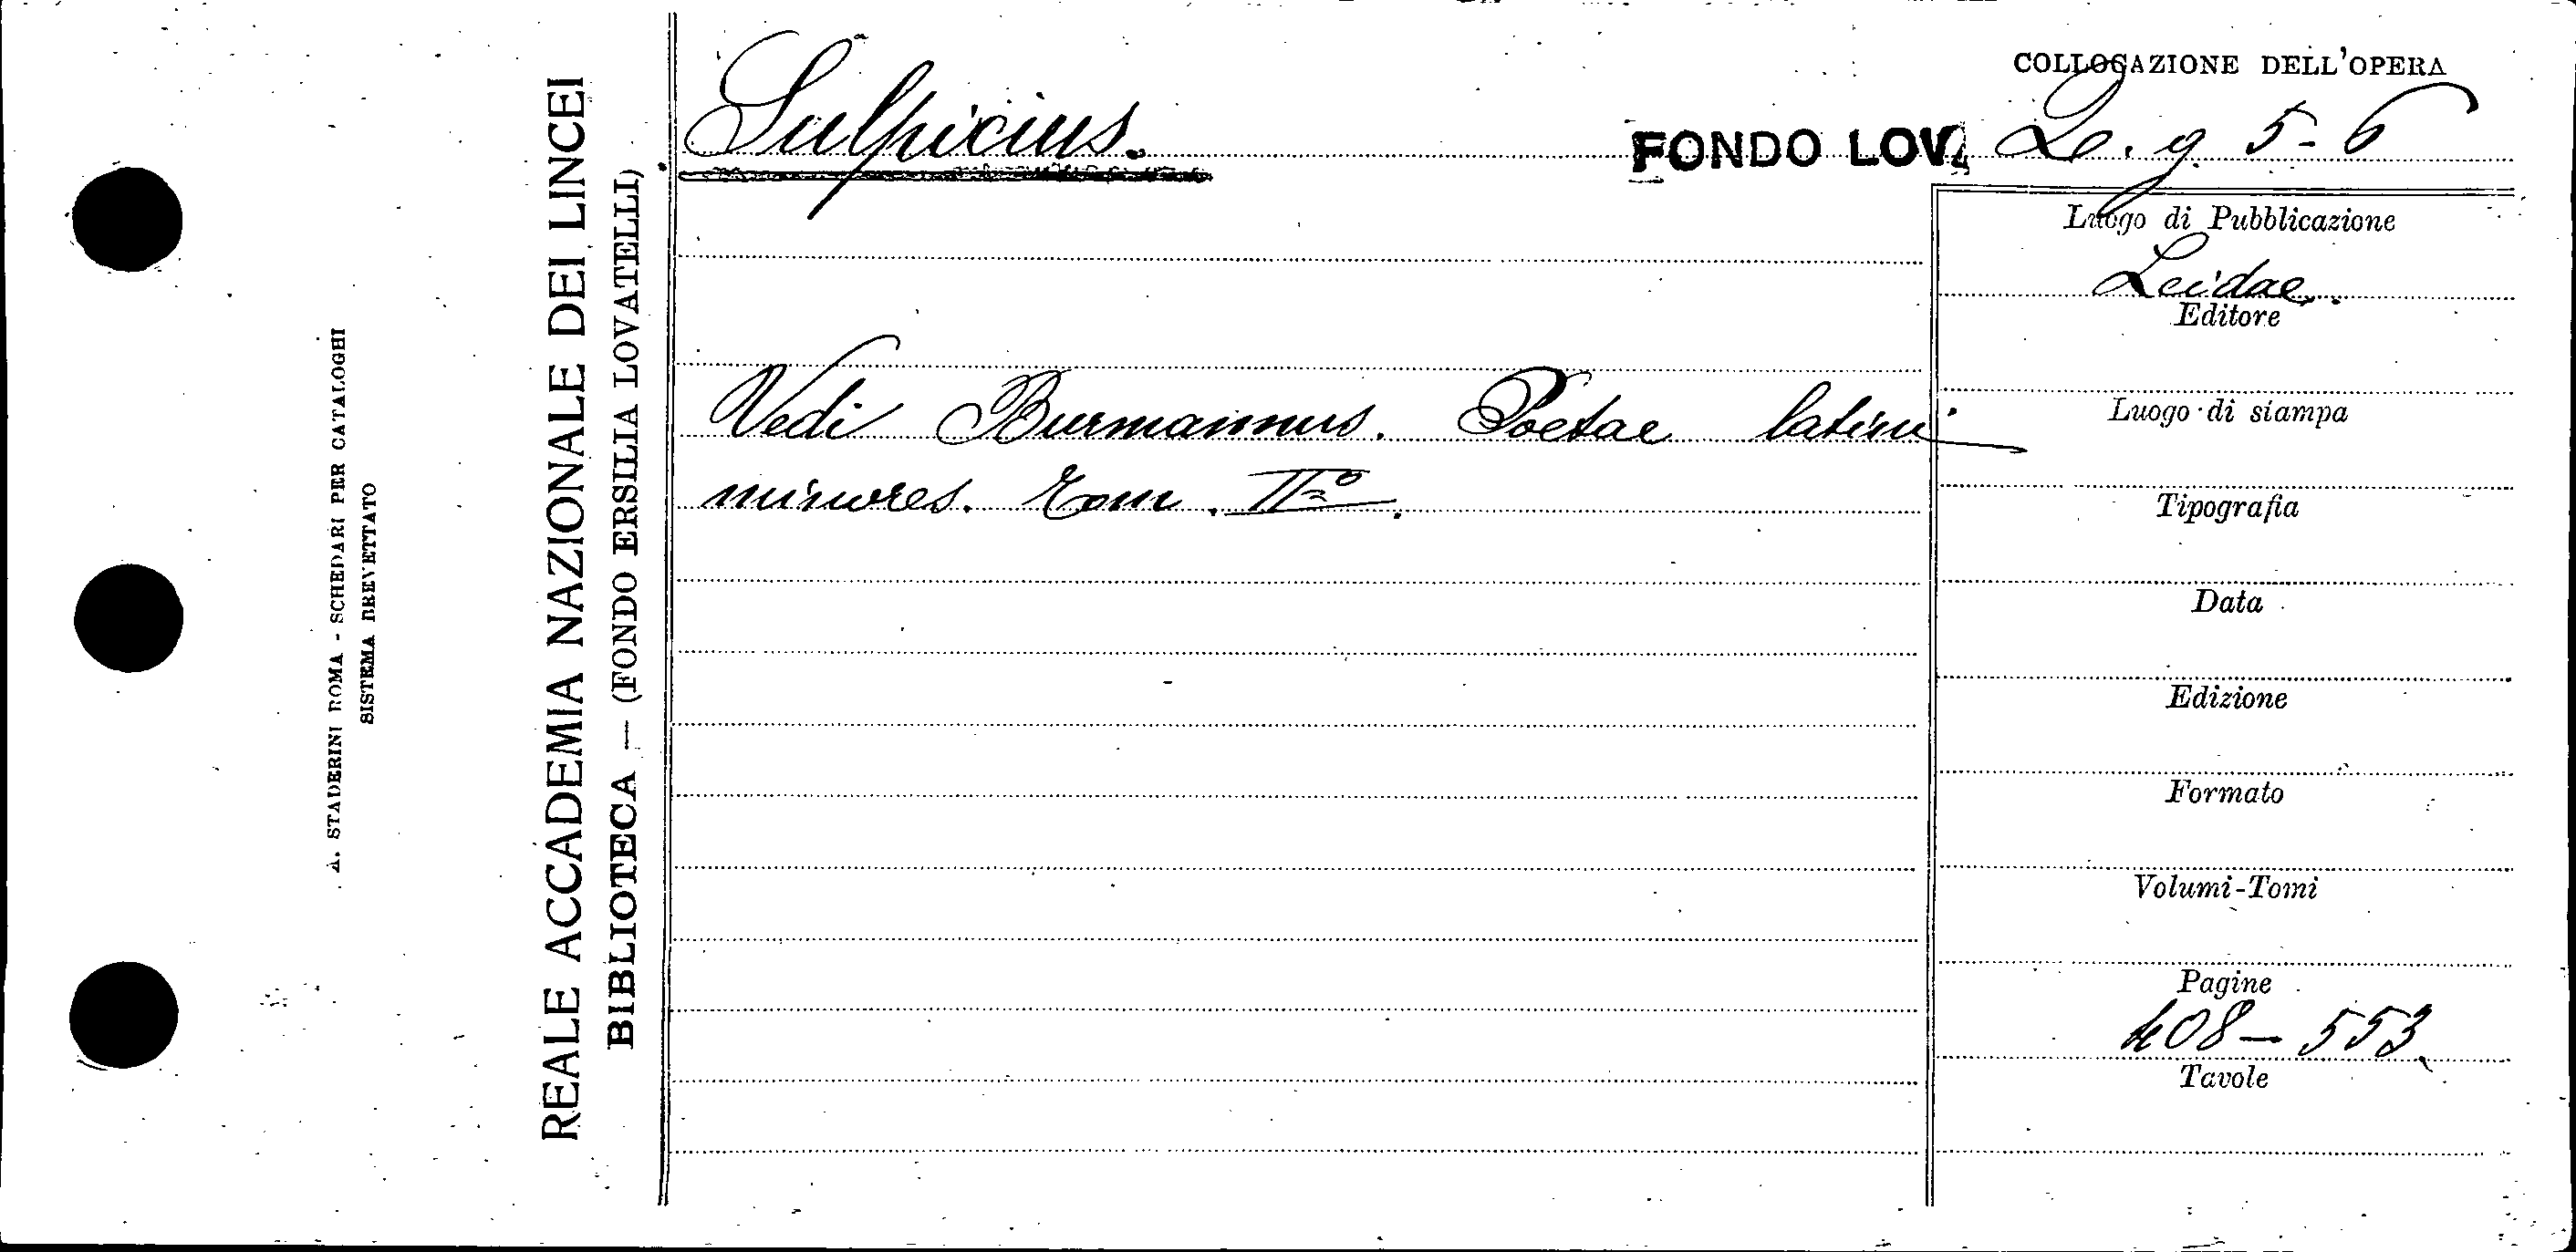 A. STADERINI ROMA - SCHEDARI PER CATALOGHI
SISTEMA BREVETTATO
REALE ACCADEMIA NAZIONALE DEI LINCEI
BIBLIOTECA — (FONDO ERSILIA LOVATELLI)
Sulpicius.
FONDO LOV.
COLLOCAZIONE DELL'OPERA
5-6
Luogo di Pubblicazione
Leidae.
Editore
Vedi Burmannus. Poetae latini
minores. Tom. II°.
Luogo di stampa
Tipografia
Data
Edizione
Formato
Volumi-Tomi
Pagine
408 — 553
Tavole